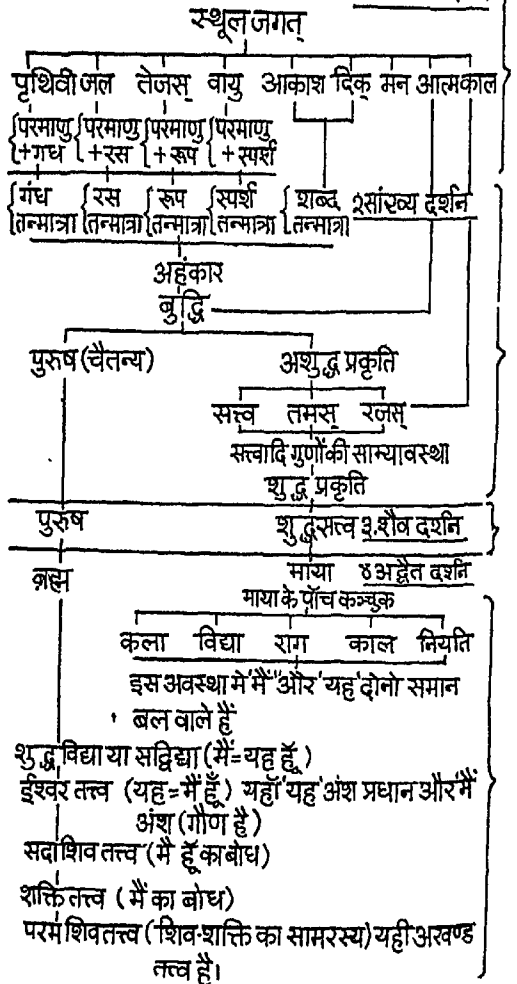 स्थूल जगत्
पृथिवी जल तेजस् वायु आकाश दिक् मन आत्म काल
परमाणु परमाणु परमाणु परमाणु
+गध +रस +रूप +स्पर्श
गंध रस रूप स्पर्श शब्द २सांख्य दर्शन
तन्मात्रा तन्मात्रा तन्मात्रा तन्मात्रा तन्मात्रा
अहंकार
बुद्धि
पुरुष (चैतन्य) अशुद्ध प्रकृति
सत्त्व तमस् रजस्
सत्त्वादि गुणों की साम्यावस्था
शुद्ध प्रकृति
पुरुष शुद्धसत्त्व ३.शैव दर्शन
ब्रह्म माया ४अद्वैत दर्शन
माया के पाँच कञ्चुक
कला विद्या राग काल नियति
इस अवस्था मे 'मैं' 'और 'यह' दोनो समान
बल वाले हैं
शुद्ध विद्या या सद्विद्या (मैं=यह हूँ)
ईश्वर तत्त्व (यह=मैं हूँ) यहाँ 'यह' अंश प्रधान और 'मैं
अंश (गौण है)
सदाशिव तत्त्व (मै हूँ का बोध)
शक्ति तत्त्व (मैं का बोध)
परम शिवतत्त्व (शिव-शक्ति का सामरस्य) यही अखण्ड
तत्त्व है।